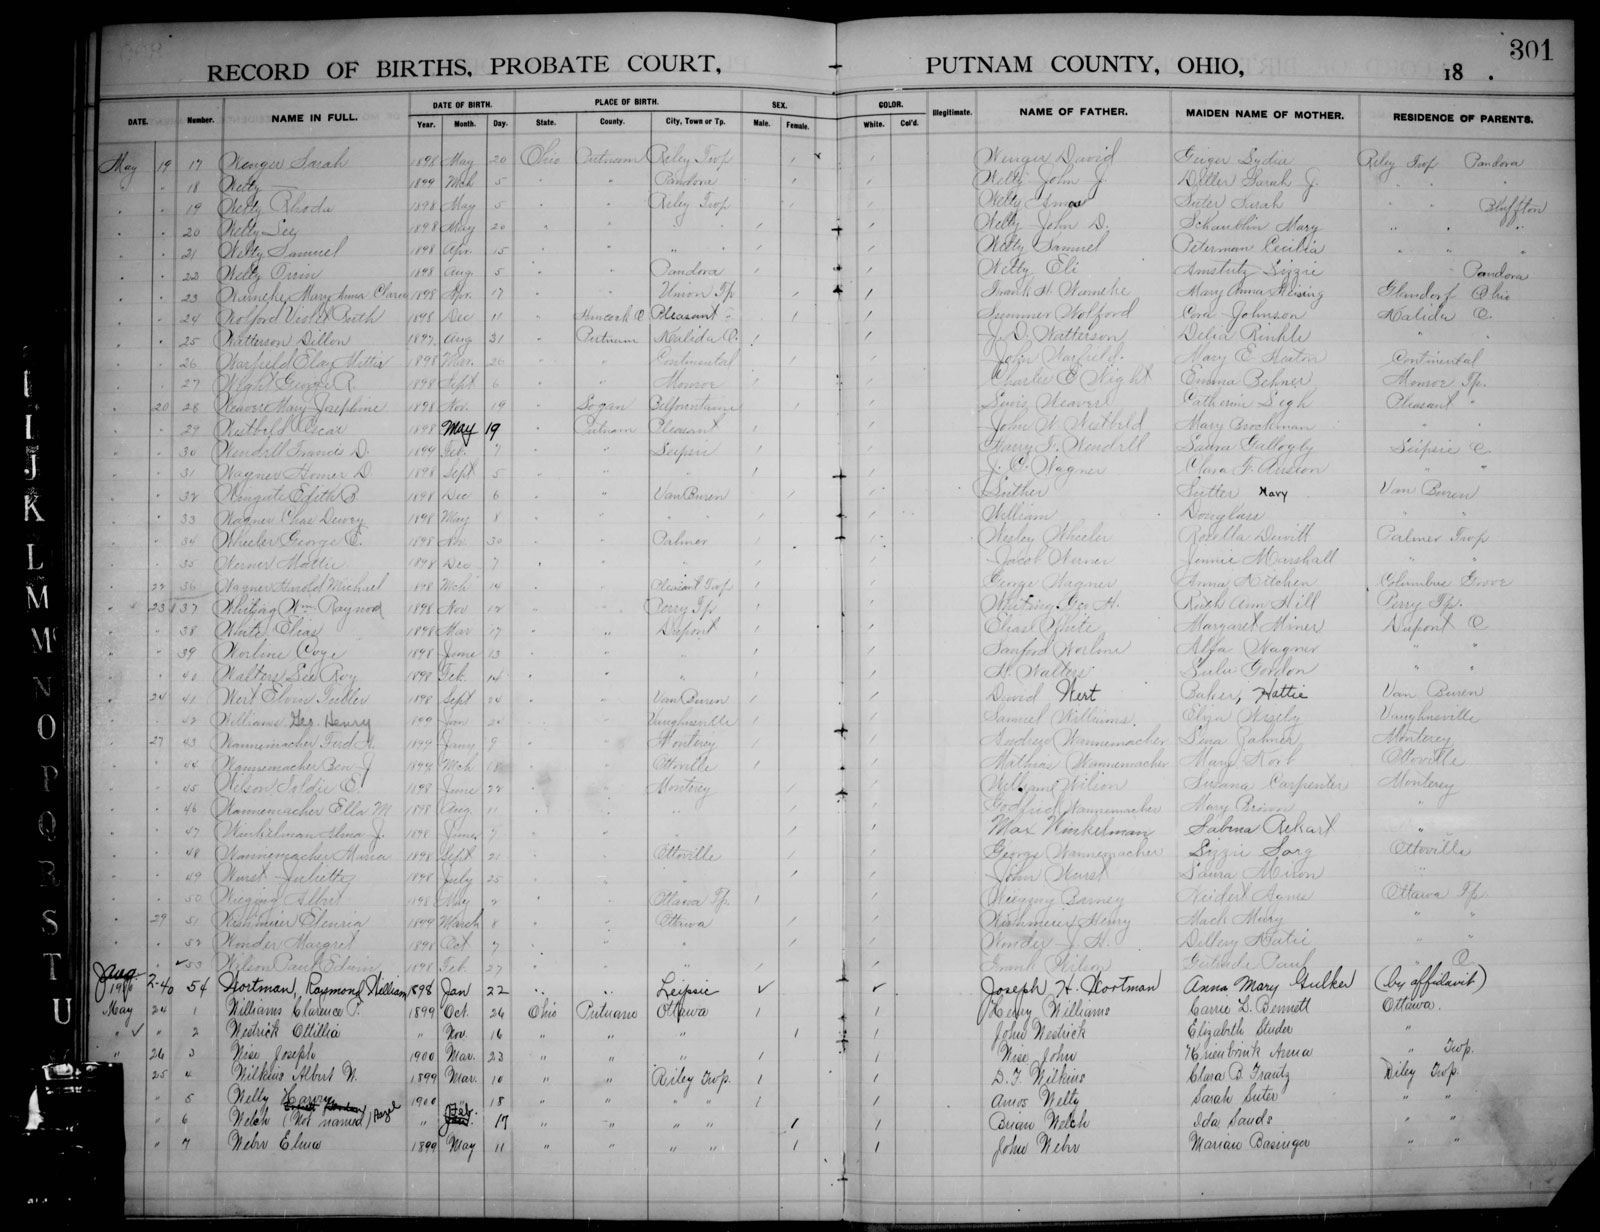 301
RECORD OF BIRTHS, PROBATE COURT, PUTNAM COUNTY, OHIO, 18 .
DATE. Number. NAME IN FULL. DATE OF BIRTH. PLACE OF BIRTH. SEX. COLOR. Illegitimate. NAME OF FATHER. MAIDEN NAME OF MOTHER. RESIDENCE OF PARENTS.
Year. Month. Day. State. County. City, Town or Tp. Male. Female. White. Col'd.
May 19 17 Wenger Sarah 1898 May 20 Ohio Putnam Riley Twp Wenger David Geiger Lydia Riley Twp Pandora
" " 18 Welty 1899 Mch 5 " " Pandora Welty John J. Diller Sarah J. " " "
" " 19 Welty Rhoda 1898 May 5 " " Riley Twp Welty Amos Suter Sarah " " Bluffton
" " 20 Welty 1898 May 20 " " " Welty John D. Schaublin Mary " " "
" " 21 Welty Samuel 1898 Apr. 15 " " " " Welty Samuel Peterman Cecilia " " "
" " 22 Welty Orrin 1898 Aug. 5 " " Pandora Welty Eli Amstutz Lizzie Pandora
" " 23 Warneke Mary Anna Clara 1898 Apr. 17 " " Union Tp Frank H. Warneke Mary Anna Glandorf Ohio
" " 24 Wolford Violet Ruth 1898 Dec 11 " Hancock O Pleasant " Wolford Cora Johnson Kalida O.
" " 25 Watterson Dillon 1897 Aug 31 " Putnam Kalida O. J. D. Watterson Delia Rinkle "
" " 26 Warfield 1898 Mar. 26 " " Continental John Warfield. Mary E Continental
" " 27 Wight George R. 1898 Sept 6 " " Monroe Charles E Wight Emma Behner Monroe Tp.
" 20 28 Weaver Mary Josephine 1898 Nov. 19 " Logan Bellfountaine Weaver Catherine Pleasant "
" " 29 Oscar 1898 May 19 " Putnam Pleasant John Mary Brockman " "
" " 30 Wendell Francis D. 1899 Feb. 7 " " Leipsic Harry F. Wendell Laura Gallogly Leipsic O
" " 31 Wagner Homer D 1898 Sept 5 " " " J. C. Wagner Clara " "
" " 32 Edith B 1898 Dec 6 " " Van Buren Luther Sutter Mary Van Buren
" " 33 Wagner Chas Dewey 1898 May 8 " " " William Douglass " "
" " 34 Wheeler George E. 1898 Nov. 30 " " Palmer Wesley Wheeler Rosella Dewitt Palmer Twp
" " 35 Werner Mattie 1898 Dec 7 " " " Jacob Werner Jennie Marshall " "
" 22 36 Wagner Harold Michael 1898 Mch 14 " " Pleasant Twp George Wagner Anna Kitchen Columbus Grove
" 23 37 Whiting Wm Raymod 1898 Nov 12 " " Perry Tp. Whiting Geo H. Ruth Ann Hill Perry Tp.
" " 38 White Elias 1898 Mar 17 " " Dupont Elias White Margaret Miner Dupont O
" " 39 Worline Coye 1898 June 13 " " " Sanford Worline Alfa Wagner " "
" " 40 Walters Lee Roy 1898 Feb. 14 " " " H. Walters Gordon " "
" 24 41 Wert Elvin 1898 Sept 24 " " Van Buren David Wert Baker, Hattie Van Buren
" " 42 Williams Geo. Henry 1899 Jan 24 " " Vaughnsville Samuel Williams. Eliza Vaughnsville
" 27 43 Wannemacher Ferd A. 1899 Jany 9 " " Monterey Andrew Wannemacher Lena Monterey
" " 44 Wannemacher Ben J 1899 Mch 18 " " Ottoville Mathias Wannemacher Mary Korb Ottoville
" " 45 Wilson Goldie E. 1898 June 22 " " Monterey William Wilson Susana Carpenter Monterey
" " 46 Wannemacher Ella M 1898 Aug 11 " " " Godfried Wannemacher Mary "
" " 47 Winkelman Alma J. 1898 June 7 " " " Max Winkelman Sabina Rekart "
" " 48 Wannemacher Maria 1898 Sept 21 " " Ottoville George Wannemacher Lizzie Sorg Ottoville
" " 49 Wurst Julietta 1898 July 25 " " " John Wurst Laura Miron "
" " 50 Wiegging Albert 1898 May 2 " " Ottawa Tp. Wiegging Barney Neidert Agnes Ottawa Tp
" 29 51 1899 March 8 " " Ottawa Henry Mach Mary " "
" " 52 Wonder Margret 1898 Oct 7 " " " J. H. Dillery Katie " "
" " 53 Wilson Paul Edwin 1898 Feb. 27 Frank Wilson Gertrude Paul " O
Aug 2-40 54 Wortman, Raymond William 1898 Jan 22 " " Leipsic Joseph H. Wortman Anna Mary Gulker (by affidavit)
May 24 1 Williams Clarence P. 1899 Oct. 26 Ohio Putnam Ottawa Henry Williams Carrie L. Bennett Ottawa.
" 2 Westrick Ottillia " Nov. 16 " " " John Westrick Elizabeth Studer "
" 26 3 Wise Joseph 1900 Mar. 23 " " " Wise John Anna " Twp.
25 4 Wilkins Albert W. 1899 Mar. 10 " " Riley Twp. D. F. Wilkins Clara B. Frantz Riley Twp.
" 5 Welty Harvey 1900 " 18 " " " " Amos Welty Sarah Suter " "
" 6 Welch (Not named) Hazel " Feb. 17 " " " " Brian Welch Ida Sands " "
" 7 Webr Elma 1899 May 11 " " " " John Webr Marian Basinger " "
I
J
K
L
M
Mc
N
O
P
Q
R
S
T
U